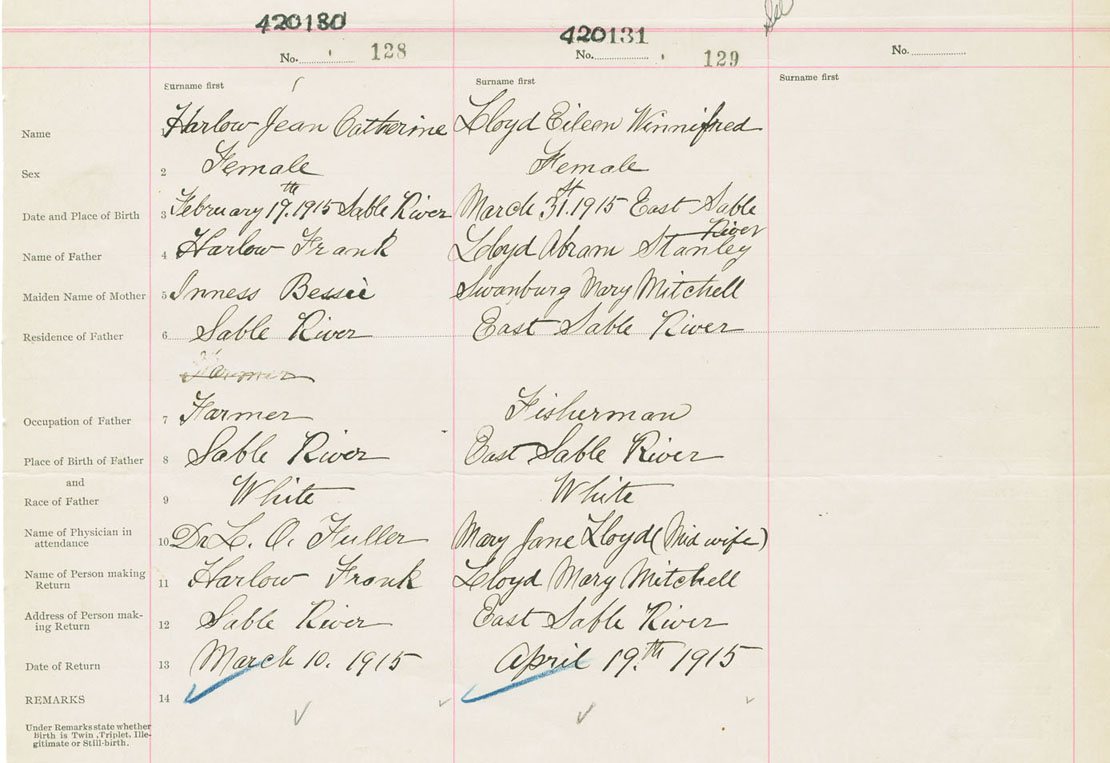 420130
420131
No. 128
No. 129
No.
Surname first
Surname first
Surname first
Name Harlow Jean Catherine Lloyd Eileen Winnifred
Sex 2 Female Female
Date and Place of Birth 3 February 19th. 1915 Sable River March 31st. 1915 East Sable River
Name of Father 4 Harlow Frank Lloyd Abram Stanley
Maiden Name of Mother 5 Inness Bessie Swanburg Mary Mitchell
Residence of Father 6 Sable River East Sable River
Farmer
Occupation of Father 7 Farmer Fisherman
Place of Birth of Father 8 Sable River East Sable River
and
Race of Father 9 White White
Name of Physician in
attendance 10 Dr L. O. Fuller Mary Jane Lloyd (Mid wife)
Name of Person making
Return 11 Harlow Frank Lloyd Mary Mitchell
Address of Person mak-
ing Return 12 Sable River East Sable River
Date of Return 13 March 10. 1915 April 19.th 1915
REMARKS 14
Under Remarks state whether
birth is Twin, Triplet, Ille-
gitimate or Still-birth.